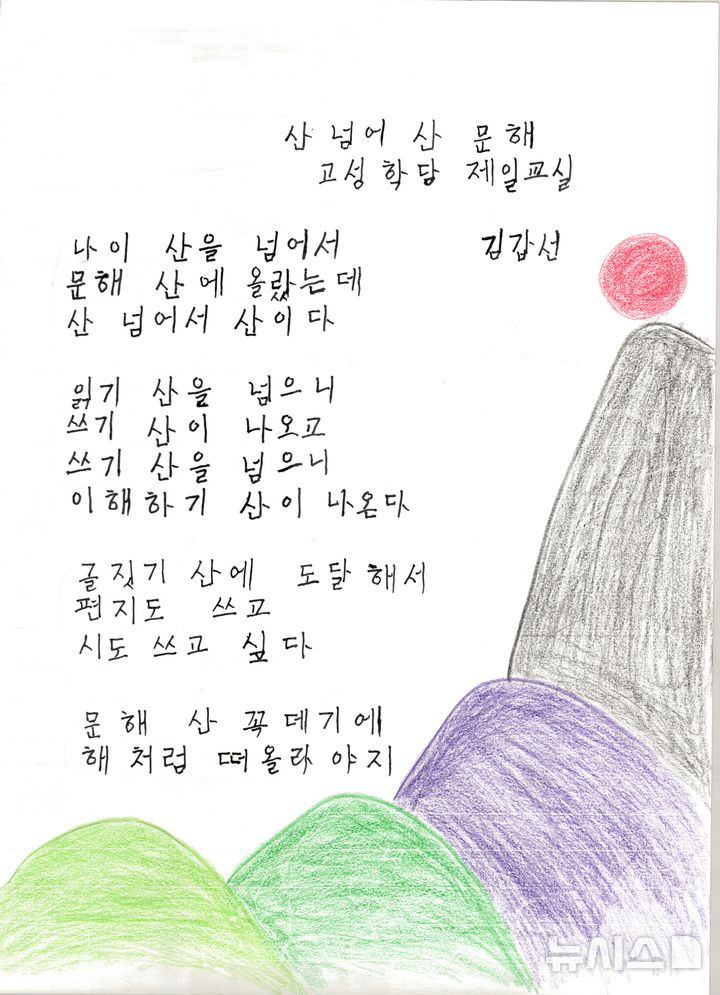 산 넘어 산 문해
고성학당 제일교실
김갑선
나이 산을 넘어서
문해 산에 올랐는데
산 넘어서 산이다
읽기 산을 넘으니
쓰기 산이 나오고
쓰기 산을 넘으니
이해하기 산이 나온다
글짓기 산에 도달해서
편지도 쓰고
시도 쓰고 싶다
문해 산 꼭데기에
해처럼 떠올라야지
뉴시스